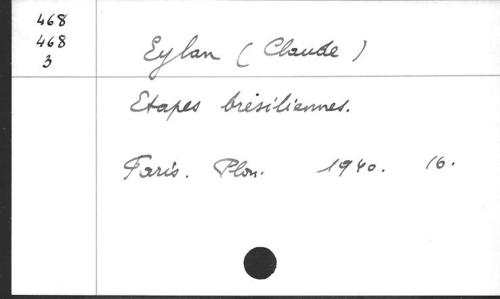 468
468
3
Eylan (Claude)
Etapes brésiliennes.
Paris. Plon. 1940. 16.